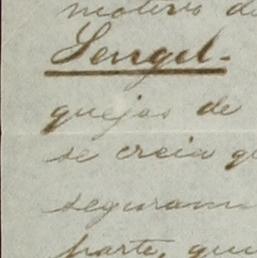 motivo de
Sengel-
quejas de
se creia qu
seguram
parte, que